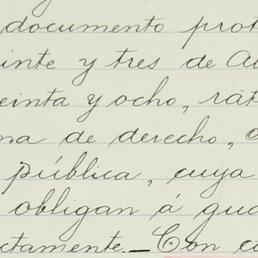 documento prot
inte y tres de A
einta y ocho, rat
ma de derecho,
pública, cuya
obligan á gua
ctamente._Con c